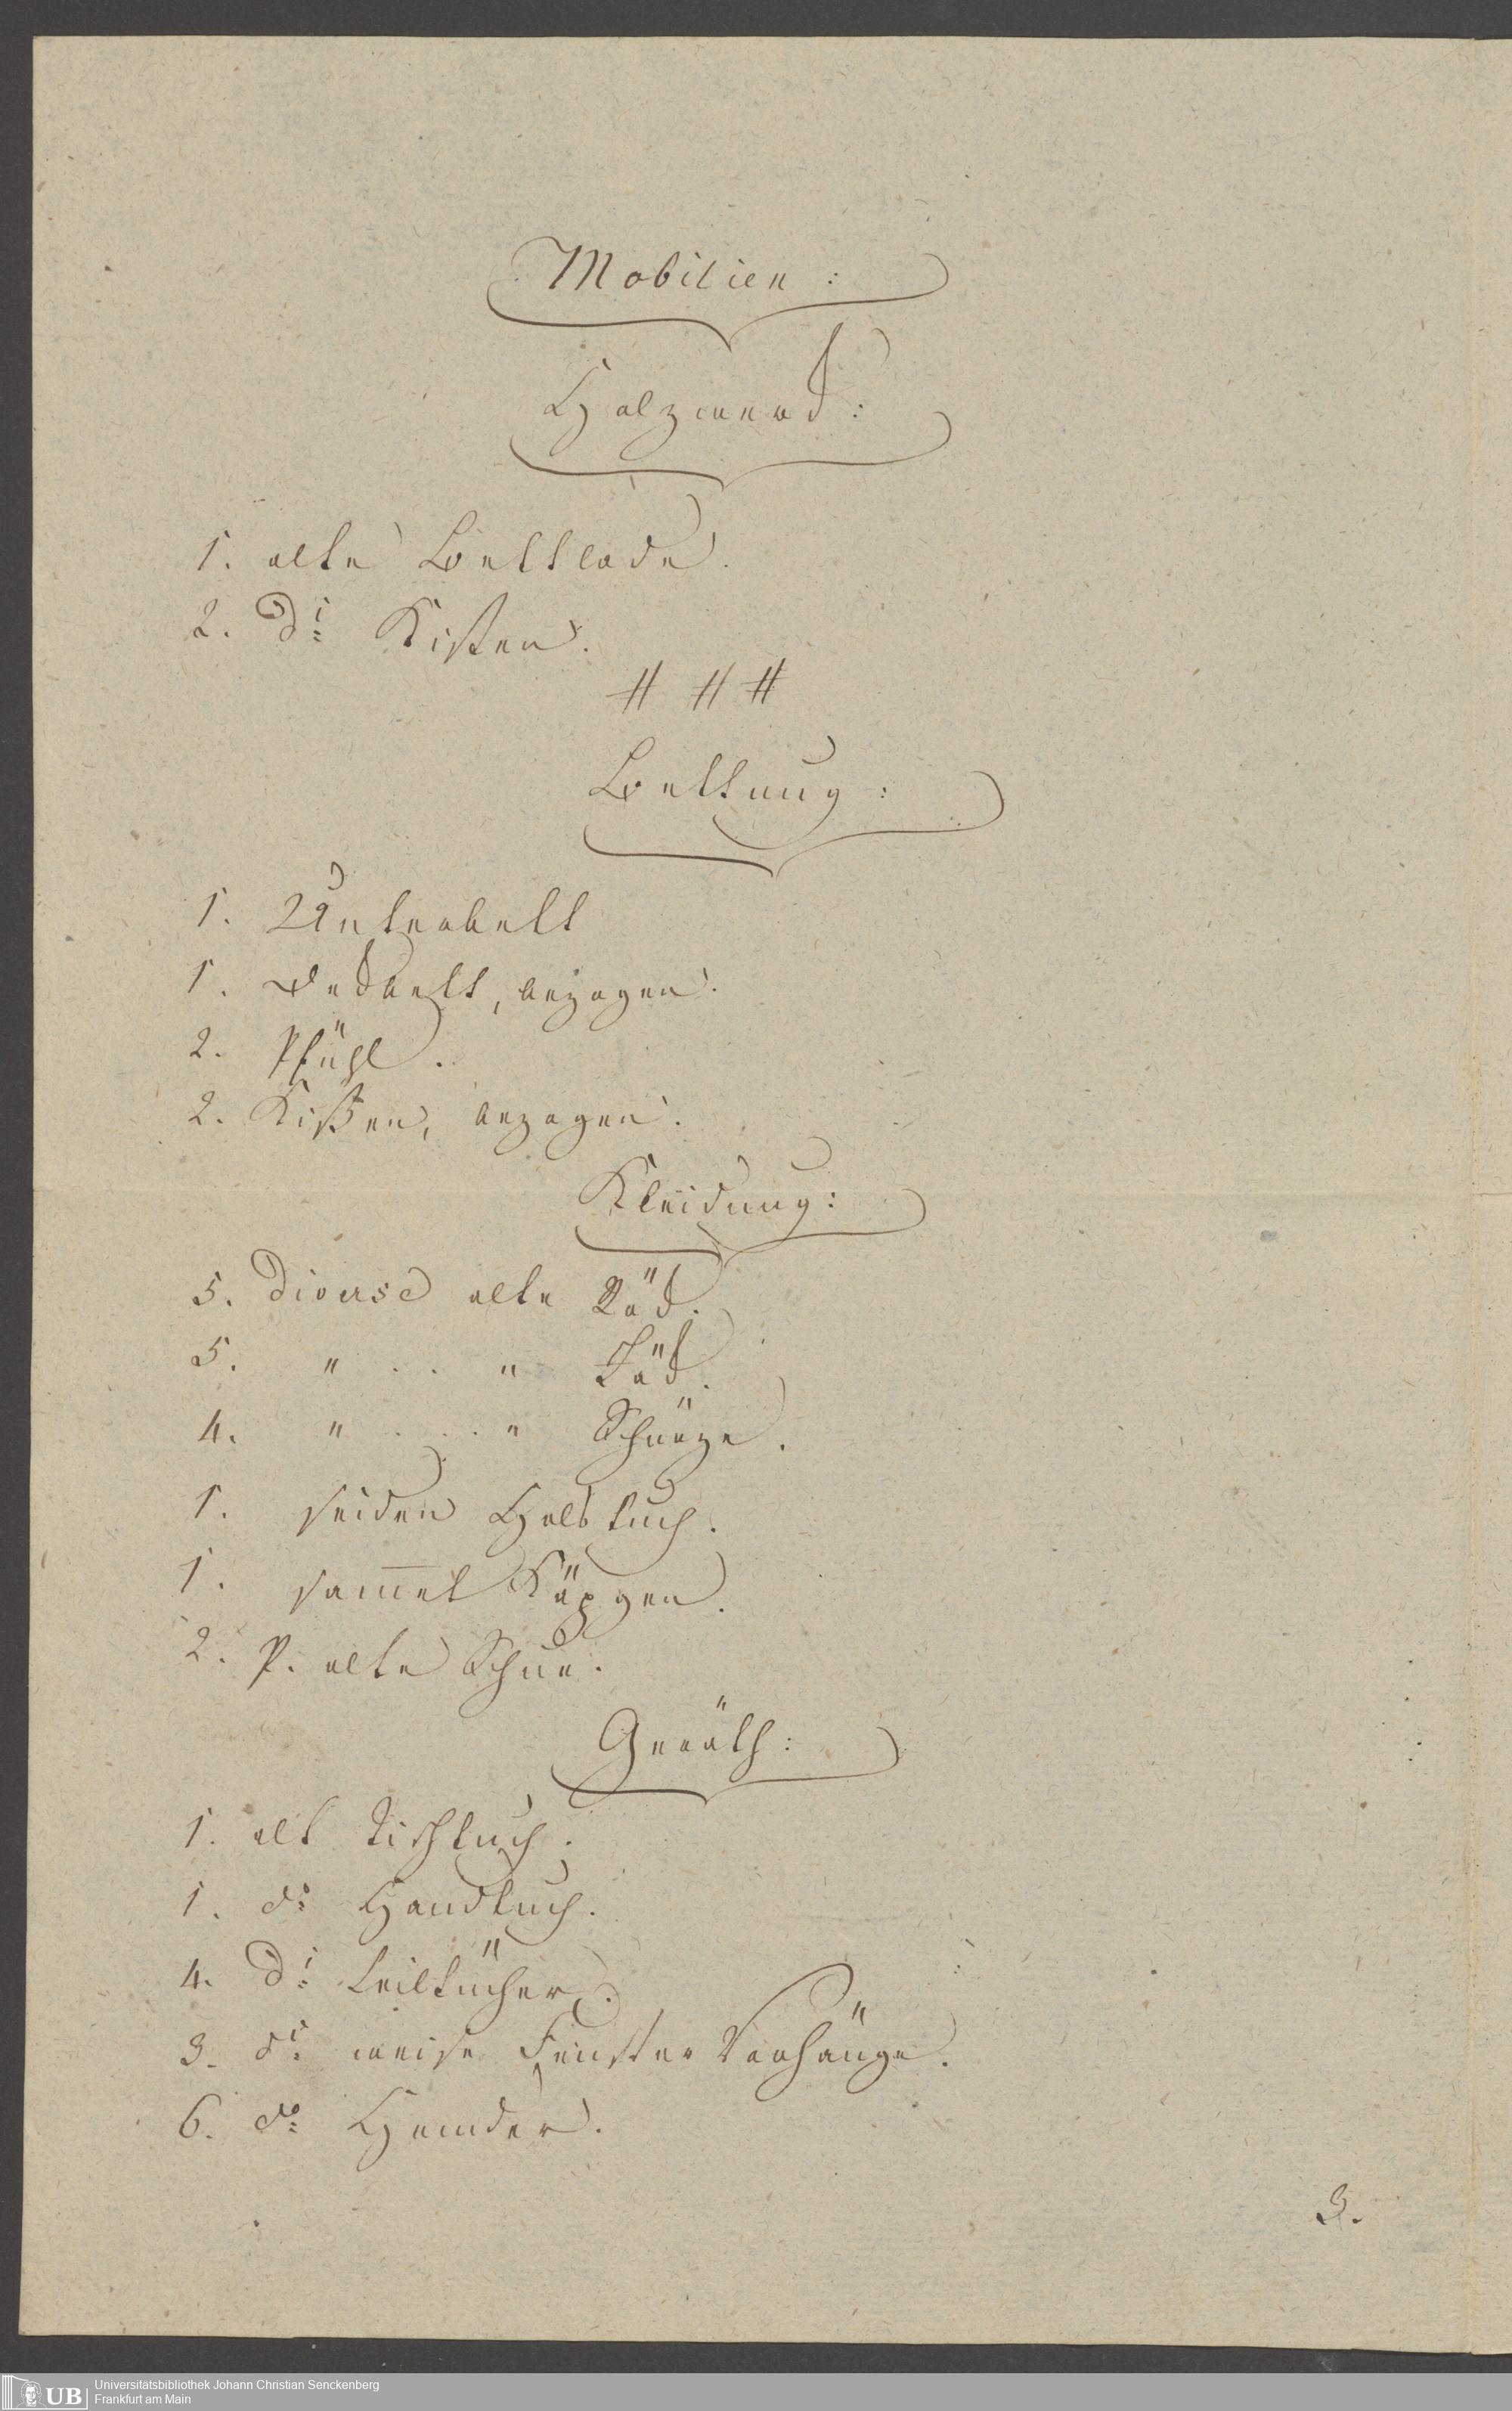 Mobilien:
Holzwerck:
1. alte Bettlade.
2. do Kisten.
# # #
Bettung:
1. Unterbett
1. Deckbett, bezogen.
2. Pfühl.
2. Kißen, bezogen.
Kleidung:
5. Diverse alte Röck.
5. " . . " Jäck.
4. " . . . " Schürze.
1. seiden Halstuch.
1. sam̄et Käpgen.
2. P. alte Schue.
Geräth:
1. alt Tischtuch.
1. do Handtuch.
4. do Leiltücher.
3. do weise Fenster Vorhänge.
6. do Hemder.
3.
UB Universitätsbibliothek Johann Christian Senckenberg
Frankfurt am Main